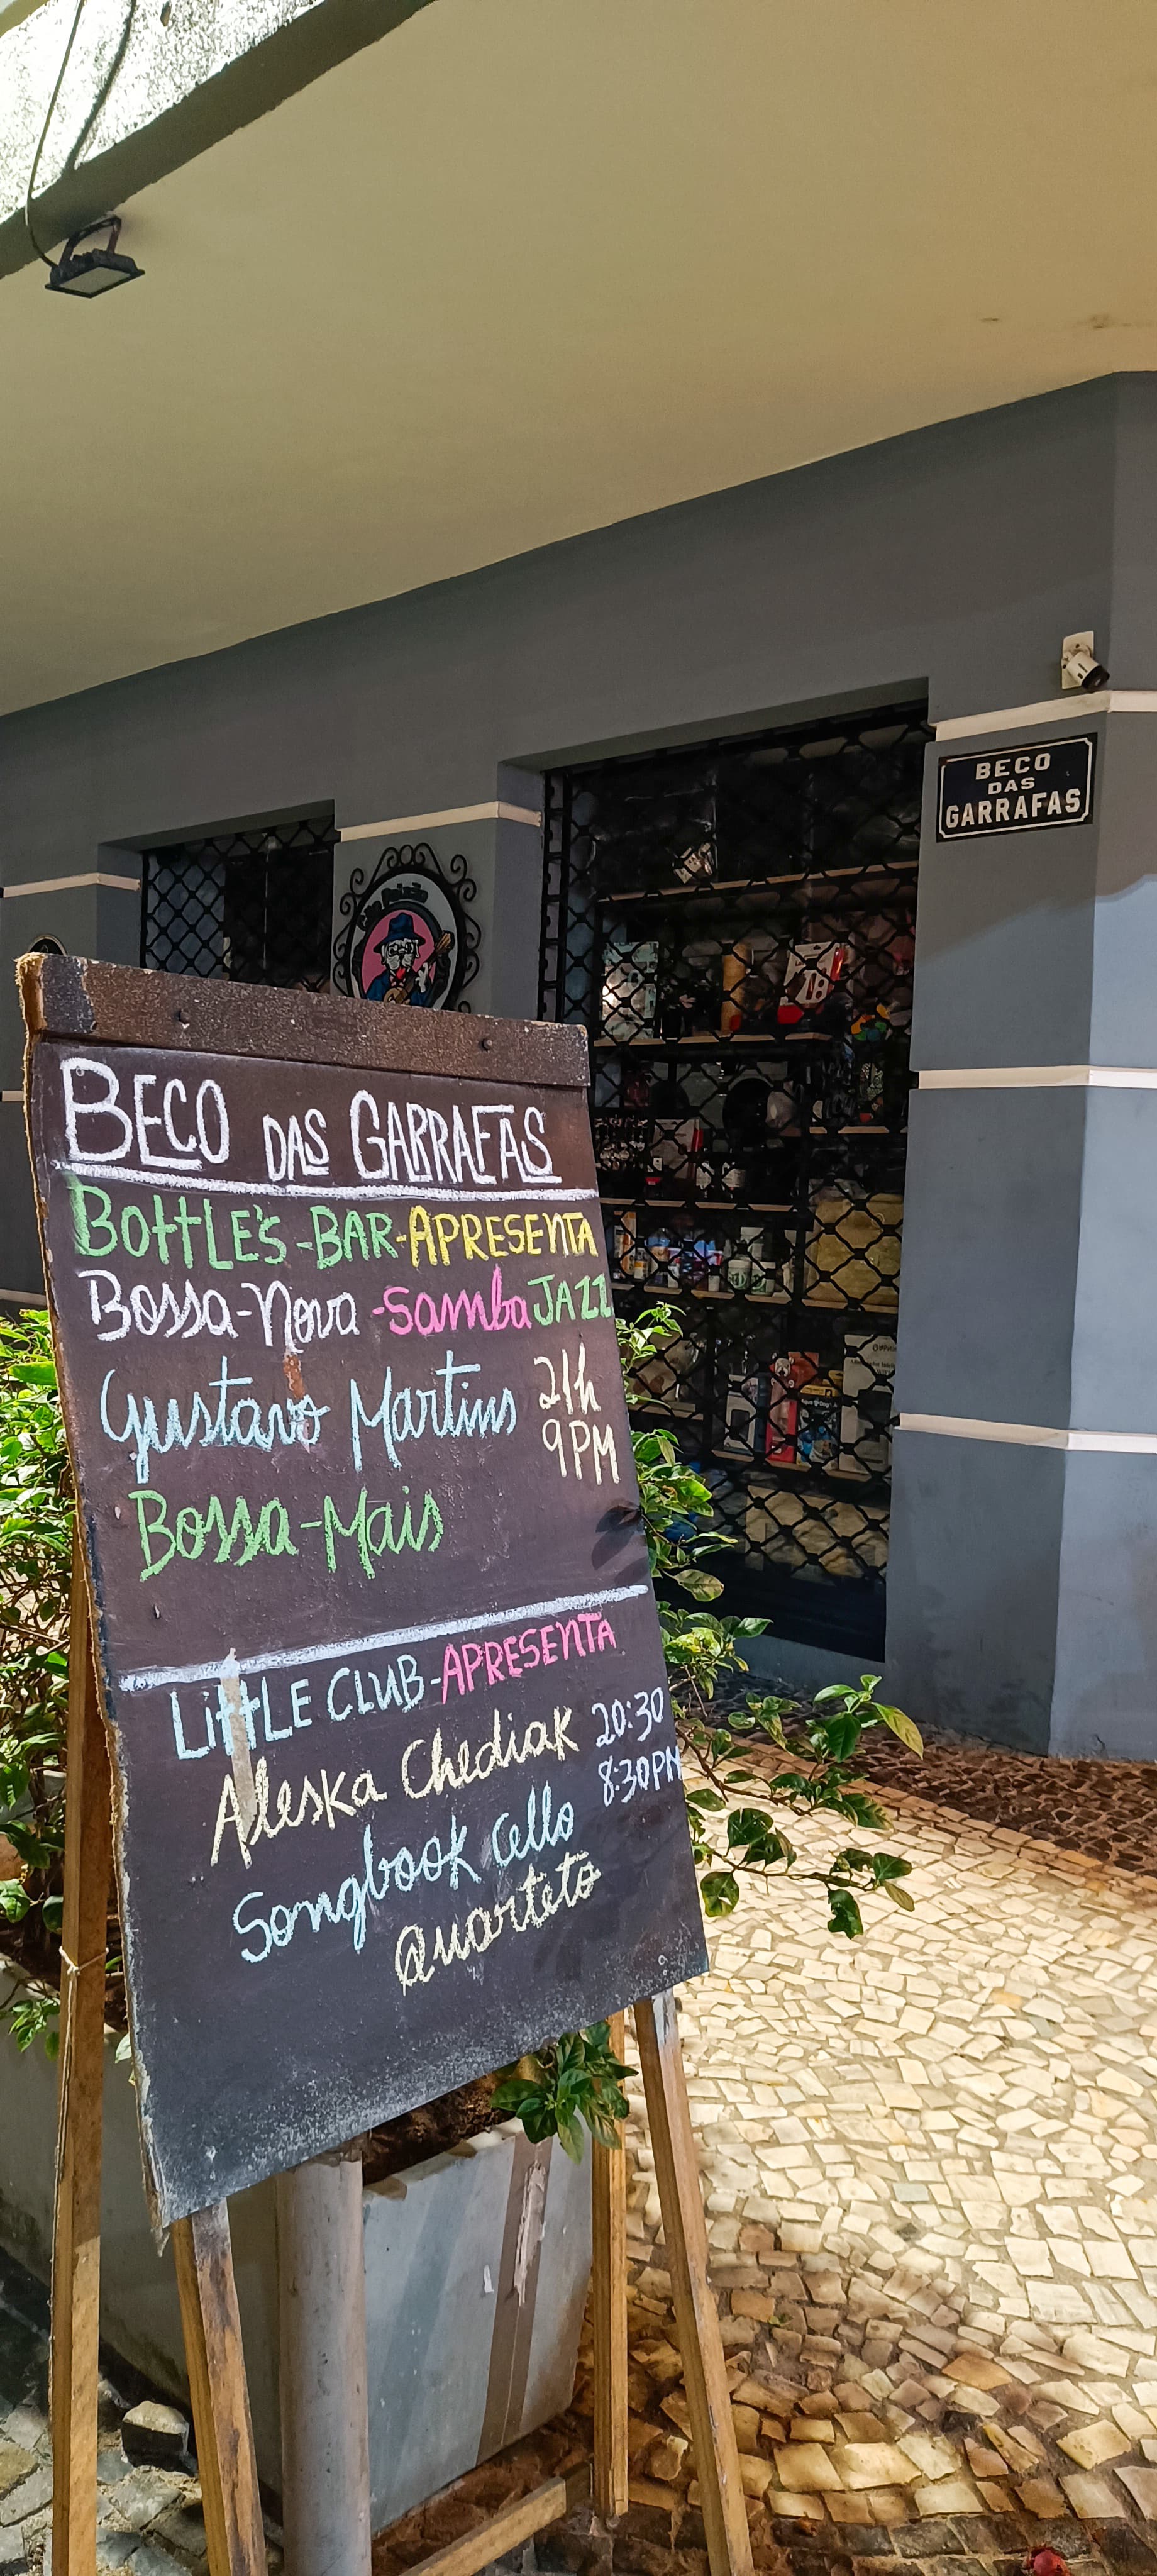 BECO
DAS
GARRAFAS
BECO DAS GARRAFAS
BOTTLE'S-BAR-APRESENTA
Bossa-Nova-Samba JAZZ
Gustavo Martins 21h
9PM
Bossa-Mais
LiTTLE CLUB-APRESENTA
Aleska Chediak 20:30
8:30PM
Songbook Cello
Quarteto
18